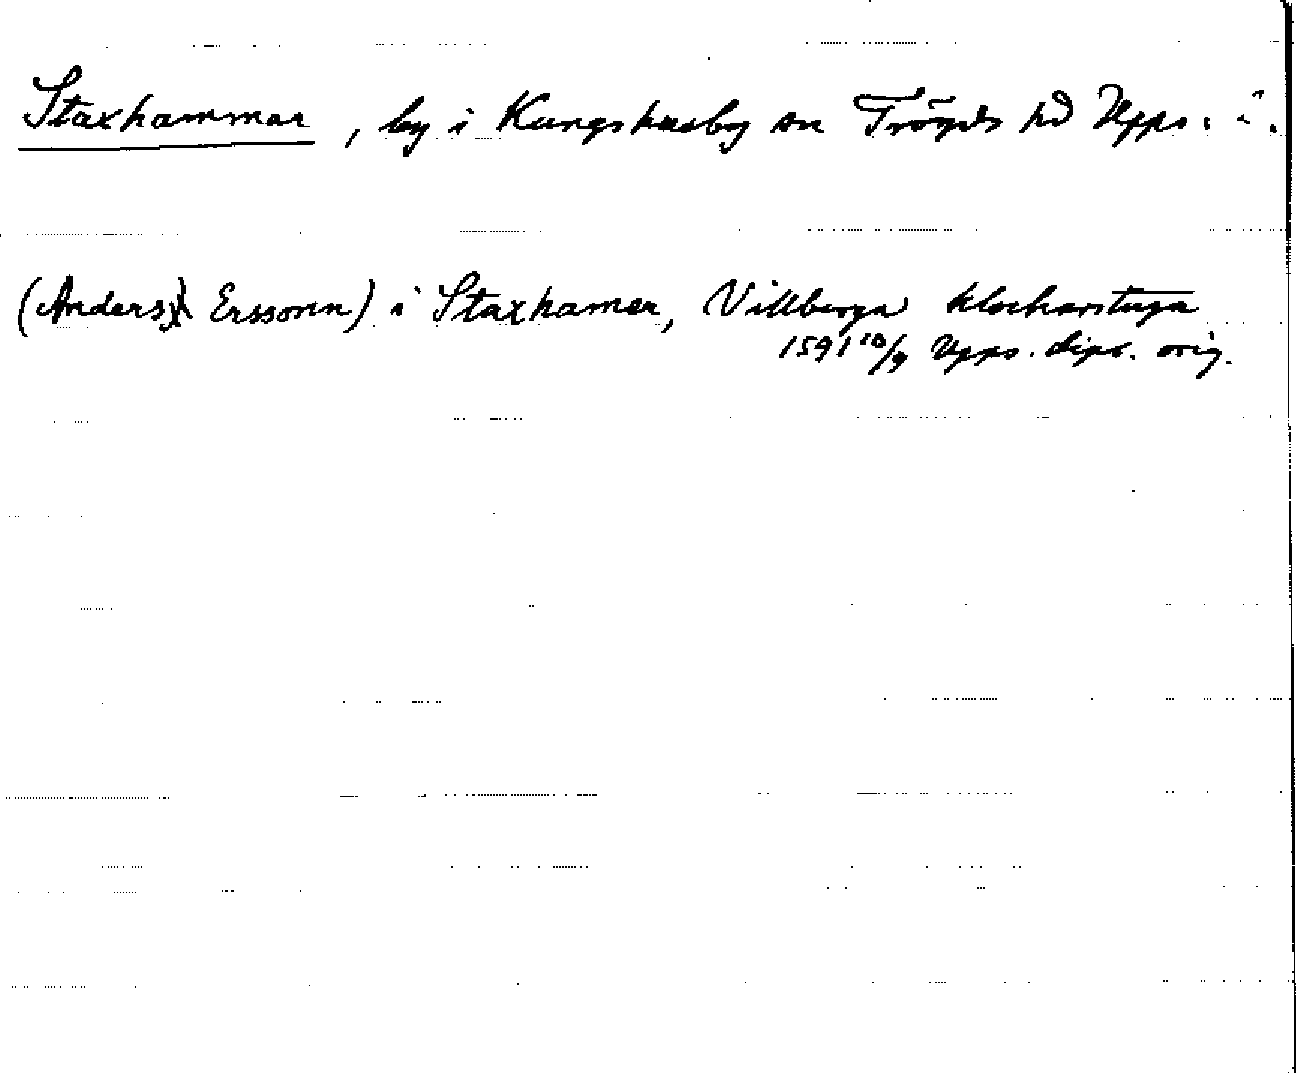 Staxhammar, by i Kungshusby sn Trögds hd Upps. l.
(Anders Erssonn) i Staxhamer, Villberga klockarstuga
1591 10/9 Upps. dipl. orig.